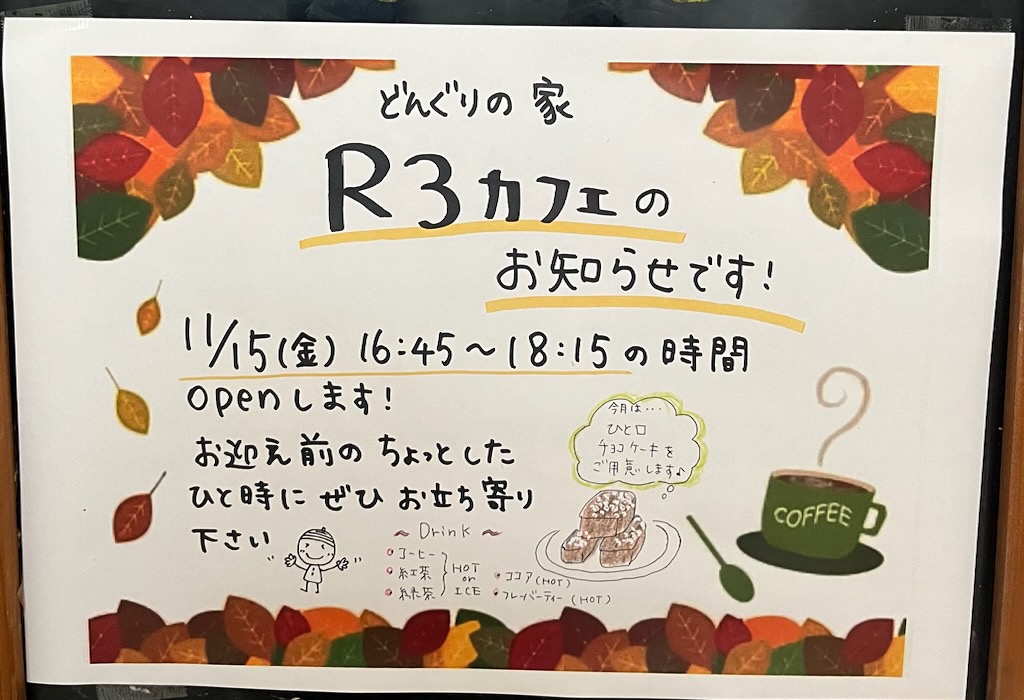 どんぐりの 家
R3カフェの
お知らせです!
11/15(金) 16:45～18:15の時間
openします!
お迎え前の ちょっとした
ひと時に ぜひ お立ち寄り
下さい
今月は・・・
ひと口
チョコケーキを
ご用意します♪
COFFEE
～ Drink ～
コーヒー
紅茶
緑茶
HOT
or
ICE
ココア (HOT)
フレーバーティー (HOT)